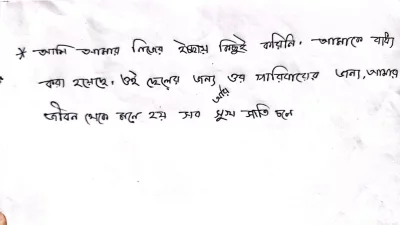 * আমি আমার নিজের ইচ্ছায় কিছুই করিনি. আমাকে বাধ্য
করা হয়েছে. ওই ছেলের জন্য ওর পরিবারের জন্য, আমার
জীবন থেকে মনে হয় সব সুখ শান্তি চলে